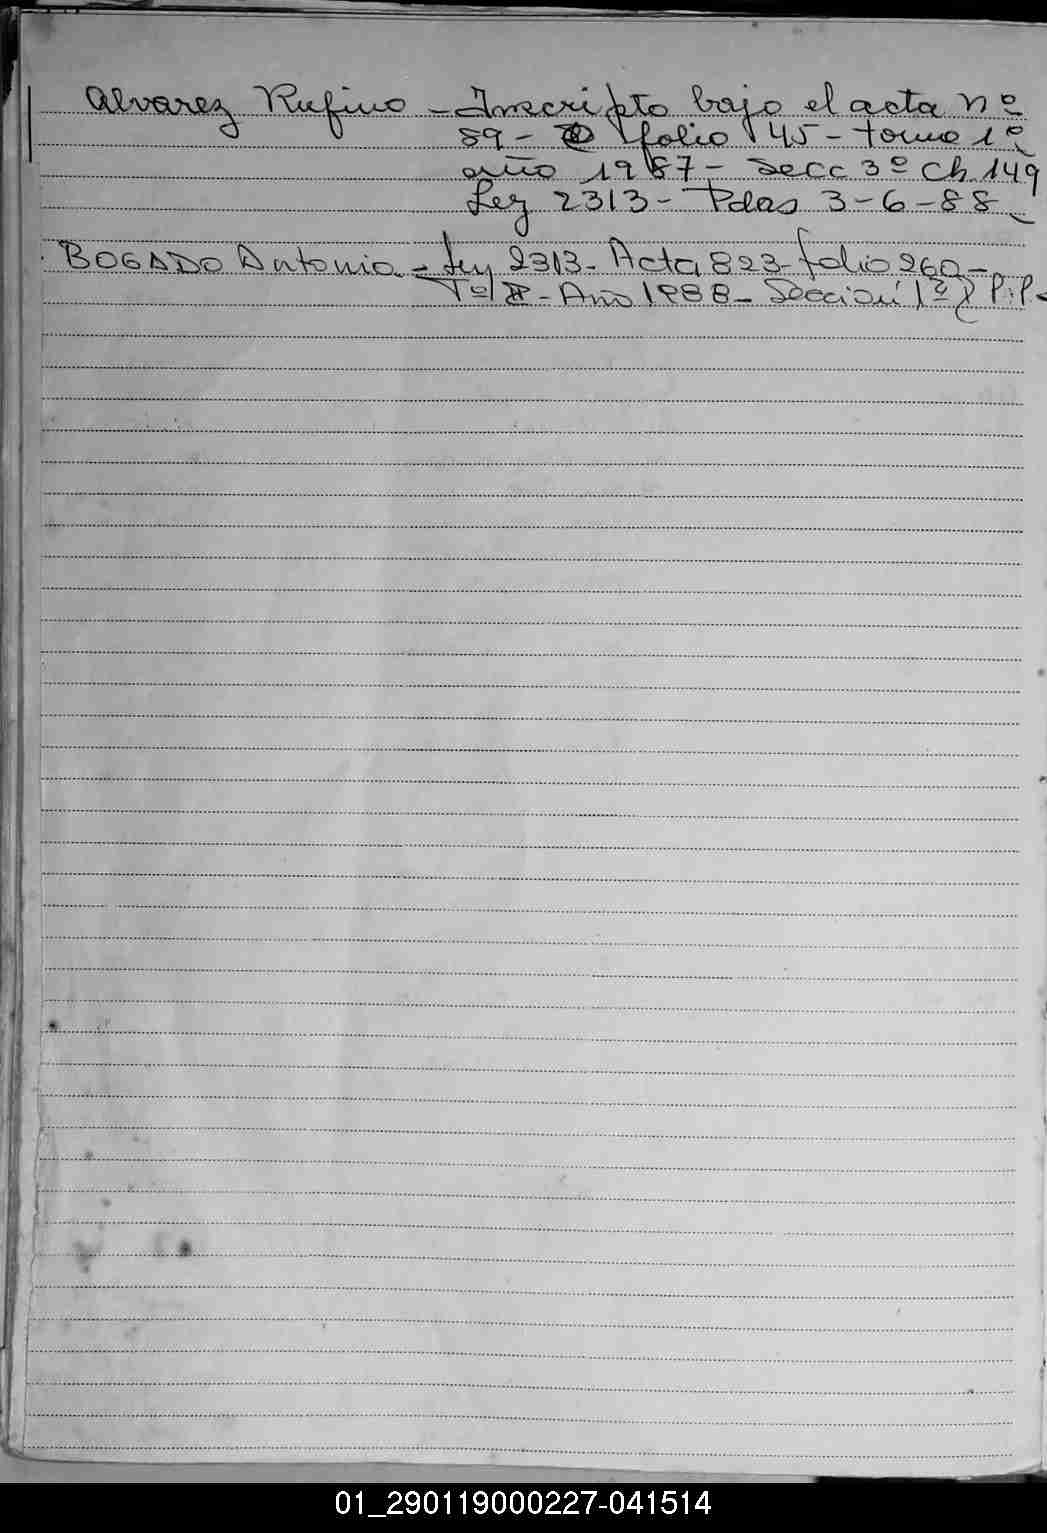 Alvarez Rufino - Inscripto bajo el acta nº
89 - folio 45 - tomo 1º
año 1987 - Secc 3º Ch 149
Ley 2313 - Pdas 3-6-88
BOGADO Antonia - Ley 2313 - Acta 823 - folio 260 -
Tº II - Año 1988 - Sección 1º P.P.
01_290119000227-041514